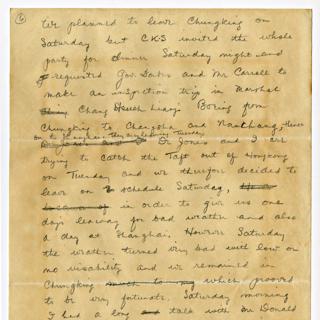 6
We planned to leave Chungking on
Saturday but CKS invited the whole
party for dinner Saturday night and
requested Gov. and Mr Carroll to
make an inspection trip in Marshal
Chang Hsueh Liang's Boeing from
Chungking to Changsha and Nanchang, thence
on to Shanghai leaving Tuesday
Dr Jones and I are
trying to catch the Taft out of Hongkong
on Tuesday and we therefor decided to
leave on schedule Saturday,
in order to give us one
days leeway for bad weather and also
a day at Shanghai. However Saturday
the weather turned very bad with low or
no visability and we remained in
Chungking which prooved
to be very fortunate. Saturday morning
I had a long talk with Mr Donald